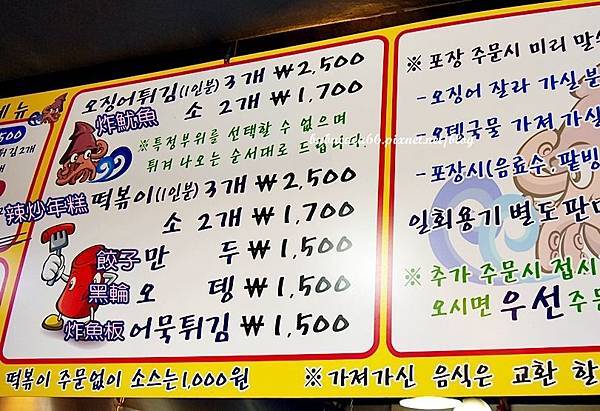 메뉴
오징어튀김(1인분) 3개 ₩2,500
炸魷魚 소 2개 ₩1,700
※특정부위를 선택할 수 없으며
튀겨 나오는 순서대로 드립니다
辣炒年糕 떡볶이(1인분) 3개 ₩2,500
소 2개 ₩1,700
餃子 만 두 ₩1,500
黑輪 오 뎅 ₩1,500
炸魚板 어묵튀김 ₩1,500
떡볶이 주문없이 소스는 1,000원
※가져가신 음식은 교환 할
500
튀김2개
2개
※ 포장 주문시 미리 말
-오징어 잘라 가실 분
-오뎅국물 가져 가실
-포장시(음료수, 팥빙
일회용기 별도 판매
※ 추가 주문시 접시
오시면 우선주